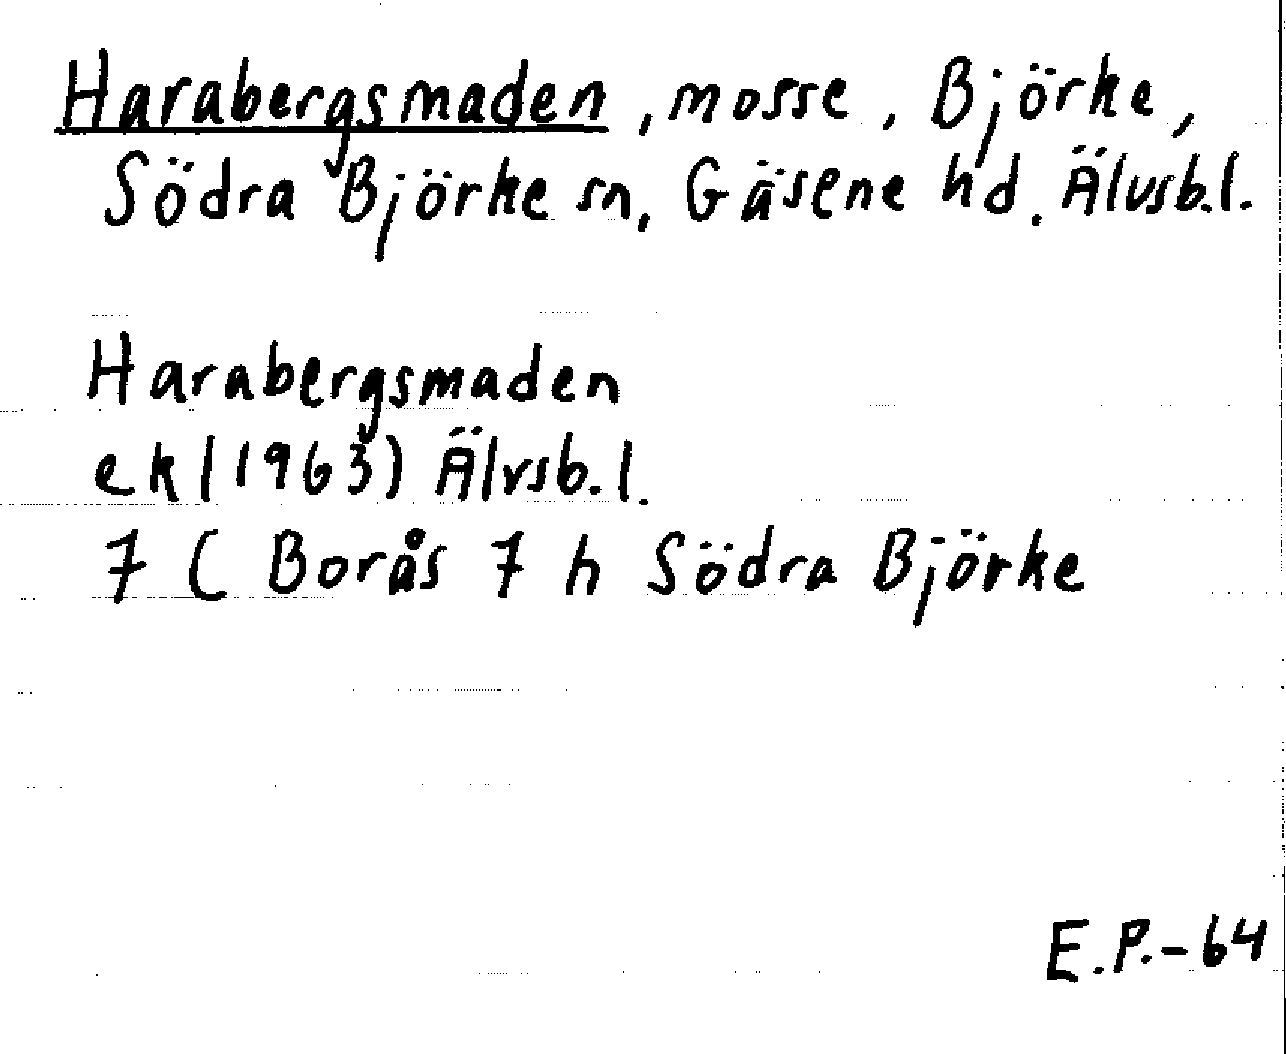 Harabergsmaden, mosse, Björke,
Södra Björke sn, Gäsene hd. Älvsb.l.
Harabergsmaden
ek (1963) Älvsb.l.
7 C Borås 7 h Södra Björke
E.P.-64